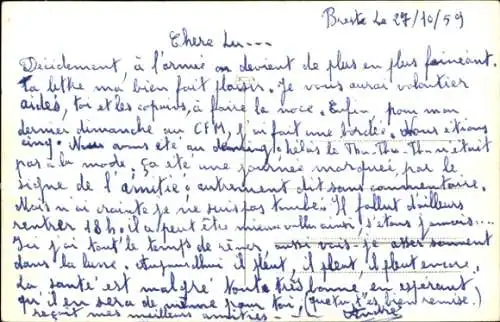 Breste Le 27/10/59
Chere Lu...
Décidement, à l'armée on devient de plus en plus fainéant.
Ta lettre m'a bien fait plaisir. Je vous aurai volontier
aidés, toi et les copains, à faire la noce. Enfin pour mon
dernier dimanche au CFM, j'ai fait une bordée. Nous étions
cinq. Nous avons été au dancing, hélas le Tha-Tha-Tha n'était
pas à la mode. Ça été une journée marquée, par le
signe de l'amitié: autrement dit sans commentaire.
Mais n'ai crainte je ne suis pas tombé. Il fallut d'ailleurs
rentrer 18h. il a peut être mieux vallu ainsi, s'étant jamais...
Ici j'ai tout le temps de rêver, aussi vais-je assez souvent
dans la lune. Aujourd'hui il pleut, il pleut, il pleut encore.
La santé est malgré tout très bonne, en espérant
qu'il en sera de même pour toi, (que tu t'es bien remise.)
reçoit mes meilleurs amitiés. André